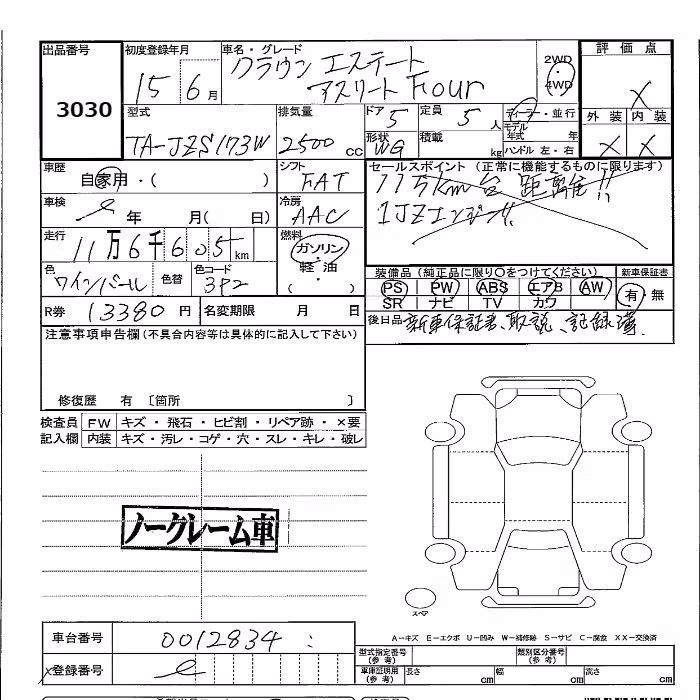 出品番号 初度登録年月 車名・グレード 2WD 評価点
3030 15 6月 クラウン エステート アスリート Four 4WD X
型式 排気量 ドア 5 定員 5人 ディーラー・並行 外装 内装
TA-JZS173W 2500cc 形状 WG 積載 kg モデル年式 年 X X
ハンドル 左・右
車歴 シフト セールスポイント (正常に機能するものに限ります)
自家用・( ) FAT 11万km台 距離!!
車検 年 月( 日) 冷房 AAC 1JZエンジン!!
走行 11万6千605km 燃料 ガソリン・軽油・( )
装備品(純正品に限り○をつけてください) 新車保証書
色 ワインパール 色替 色コード 3P2 PS PW ABS エアB AW 有・無
SR ナビ TV カワ
R券 13380円 名変期限 月 日
後日品 新車保証書、取説、記録簿
注意事項申告欄(不具合内容等は具体的に記入して下さい)
修復歴 有 〔箇所 〕
検査員記入欄 FW キズ・飛石・ヒビ割・リペア跡・×要
内装 キズ・汚レ・コゲ・穴・スレ・キレ・破レ
ノークレーム車
スペア
A-キズ E-エクボ U-凹み W-補修跡 S-サビ C-腐食 XX-交換済
車台番号 0012834
型式指定番号(参考) 類別区分番号(参考)
登録番号
車庫証明用(参考) 長さ cm 幅 cm 高さ cm